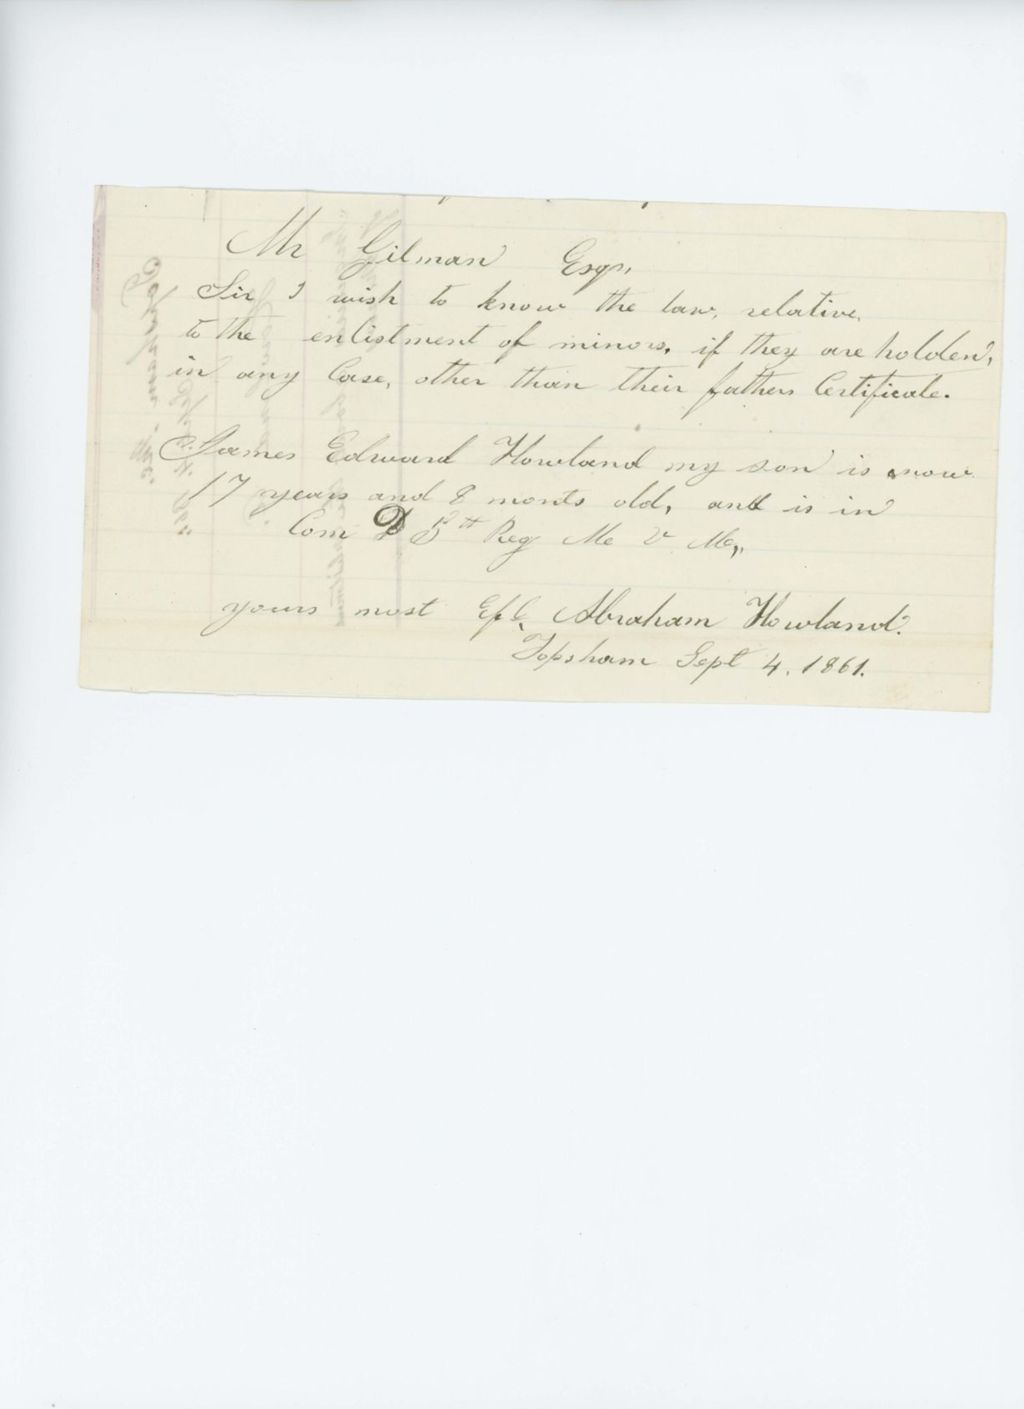 Mr Gilman Esqr,,
Sir I wish to know the law, relative,
to the enlistment of minors, if they are holden,
in any Case, other than their fathers Certificate.
James Edward Howland my son is now
17 years and 8 monts old, and is in
Com D 5th Reg Me V Me,,
yours most Abraham Howland.
Topsham Sept 4, 1861.